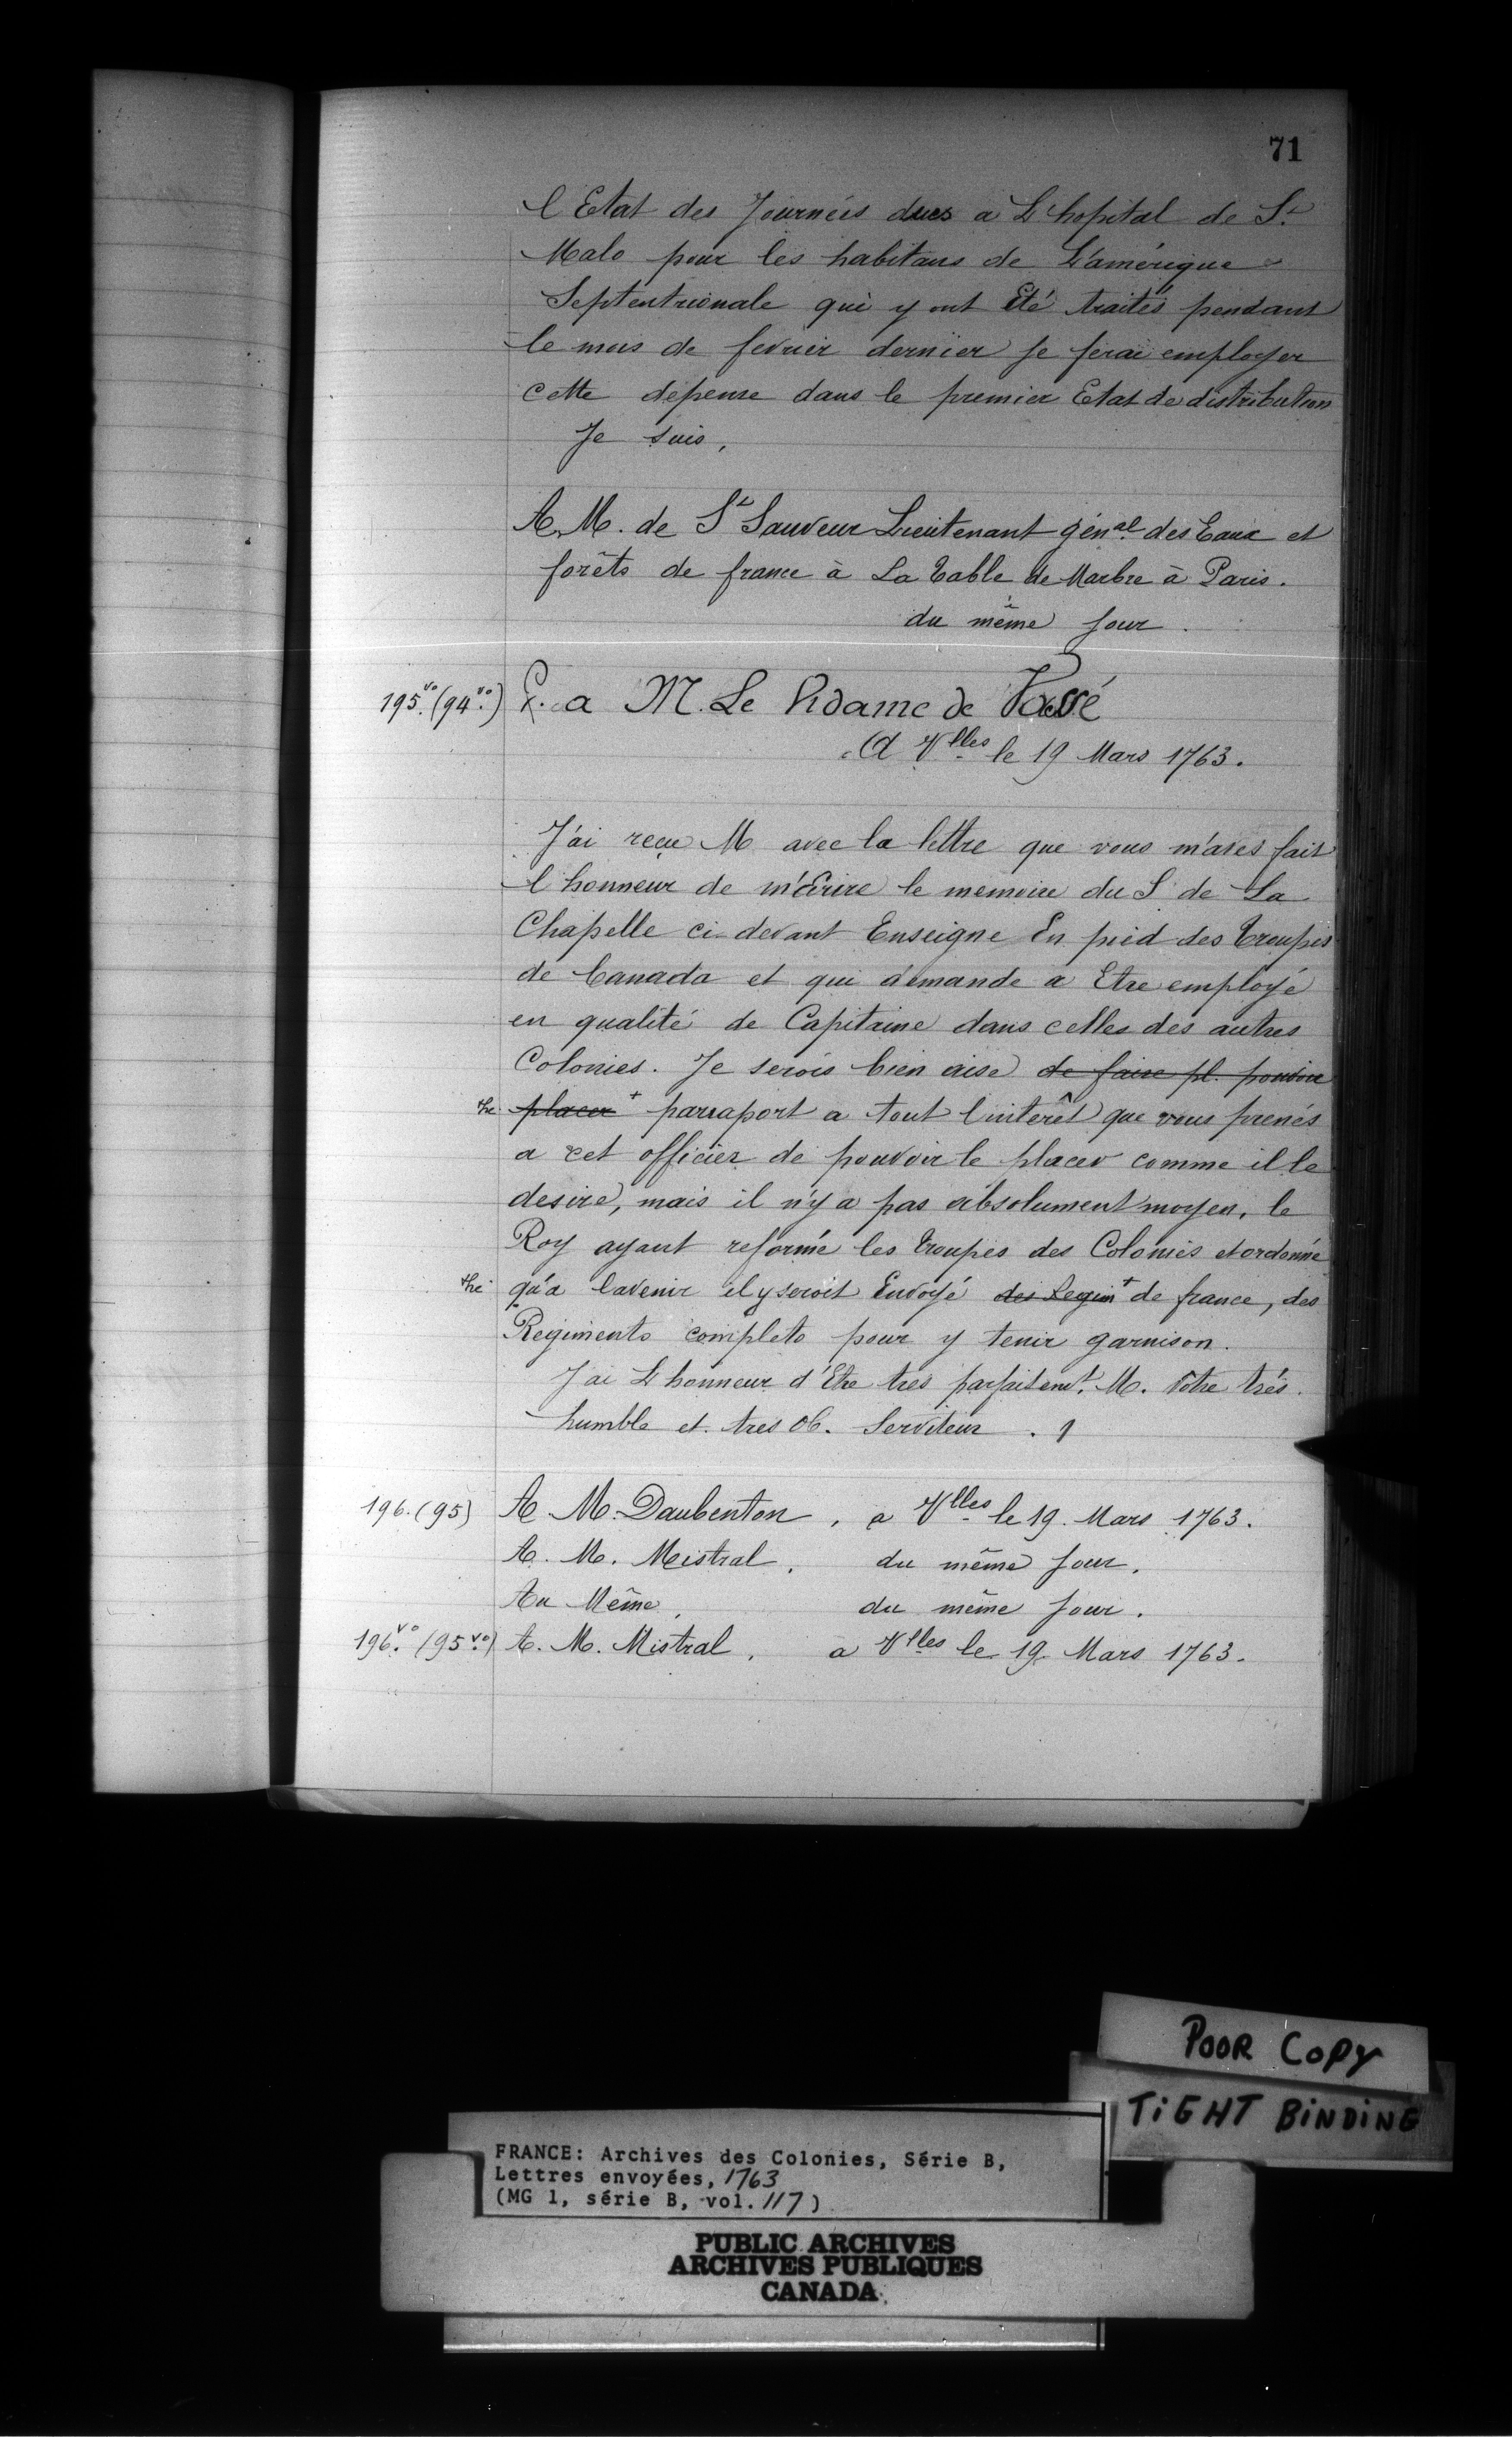 71
l'Etat des Journées dues a L'hopital de S.t
Malo pour les habitans de L'amérique
Septentrionale qui y ont Eté traités pendant
le mois de fevrier dernier je ferai employer
cette depense dans le premier Etat de distribution
Je suis,
A. M. de S.t Sauveur Lieutenant gén.al des Eaux et
forêts de france à La table de Marbre à Paris.
du même jour.
195.vo (94.vo) P. a M. Le Vidame de Vassé
A V.lles le 19 Mars 1763.
J'ai reçu M avec la lettre que vous m'avés fait
l'honneur de m'Ecrire le memoire du S. de La
Chapelle ci-devant Enseigne En pied des troupes
de Canada et qui demande a Etre employé
en qualité de Capitaine dans celles des autres
Colonies. Je serois bien aise de faire pl. pouvoir
placer + parraport a tout l'intérêt que vous prenés
a cet officier de pouvoir le placer comme il le
desire, mais il n'y a pas absolument moyen, le
Roy ayant reformé les troupes des Colonies et ordonné
qu'a l'avenir il y seroit Envoyé des Regim + de france, des
Regiments complets pour y tenir garnison.
J'ai L'honneur d'Etre très parfaitem.t M. Votre très.
humble et tres ob. Serviteur. 1
196. (95) A. M. Daubenton, a V.lles le 19. Mars 1763.
A. M. Mistral, du même jour.
Au Même, du même jour.
196.vo (95.vo) A. M. Mistral, a V.lles le 19 Mars 1763.
POOR COPY
TIGHT BINDING
FRANCE: Archives des Colonies, Série B,
Lettres envoyées, 1763
(MG 1, série B, vol. 117)
PUBLIC ARCHIVES
ARCHIVES PUBLIQUES
CANADA